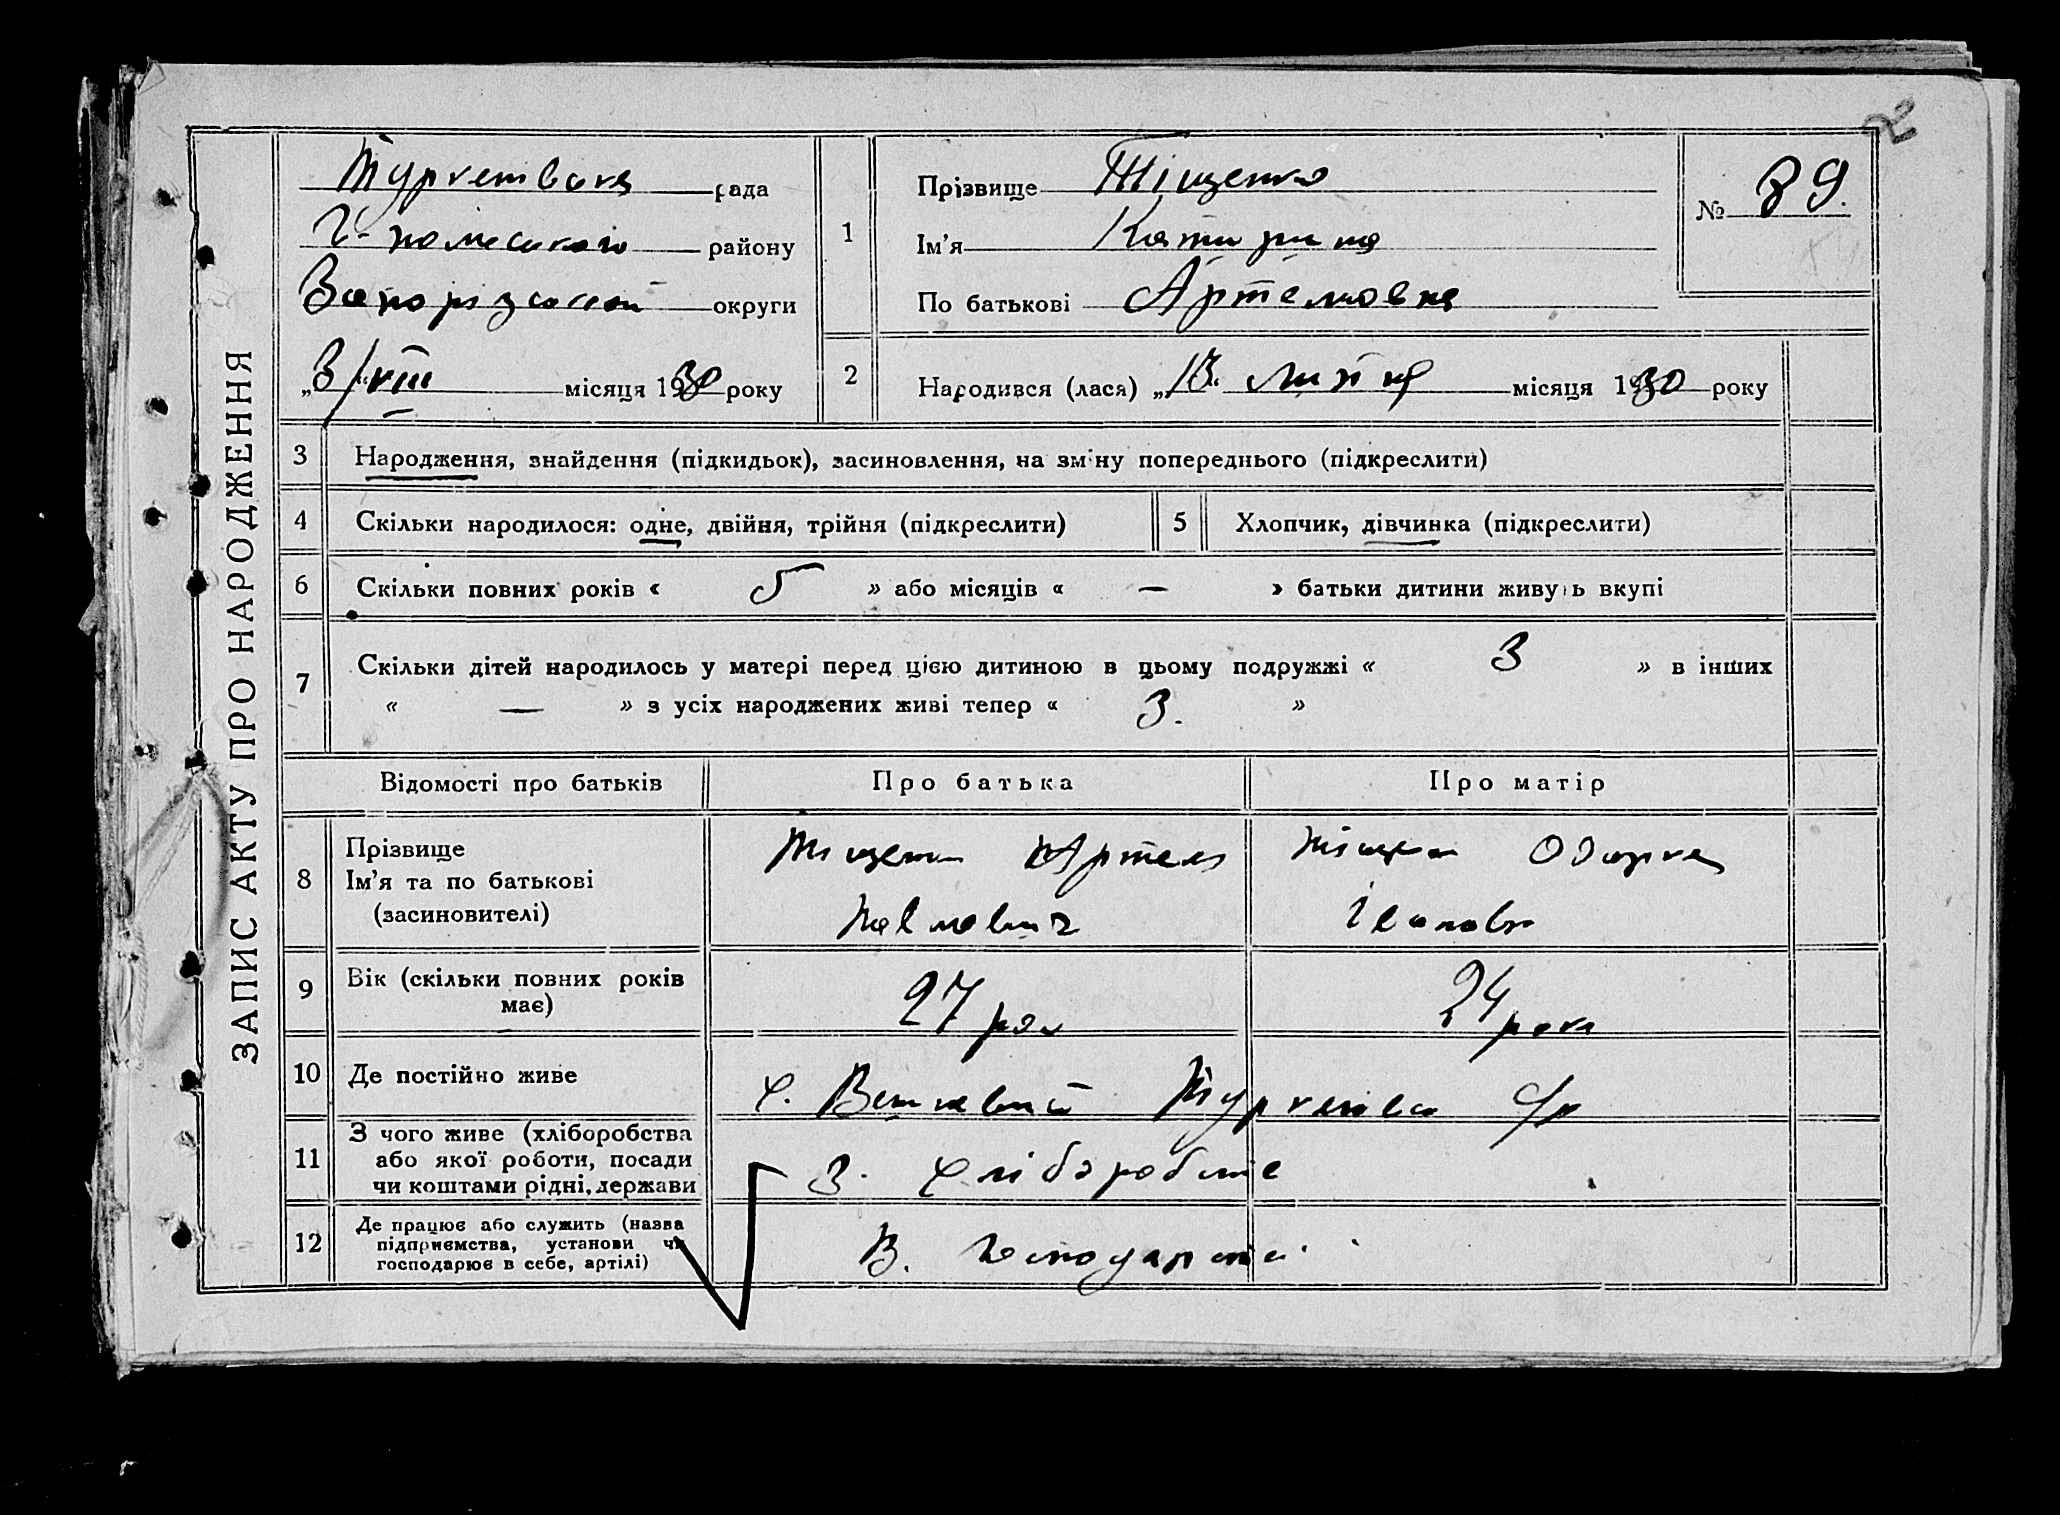 2
ЗАПИС АКТУ ПРО НАРОДЖЕННЯ
рада
району
округи
"3/VIII місяця 1930 року
1 Прізвище Тіщенко
Ім'я Катирина
По батькові Артемовна
№ 89.
2 Народився (лася) „13" липня місяця 1930 року
3 Народження, знайдення (підкидьок), засиновлення, на зміну попереднього (підкреслити)
4 Скільки народилося: одне, двійня, трійня (підкреслити) 5 Хлопчик, дівчинка (підкреслити)
6 Скільки повних років « 5 » або місяців « — » батьки дитини живуть вкупі
7 Скільки дітей народилось у матері перед цією дитиною в цьому подружжі « 3 » в інших
« — » з усіх народжених живі тепер « 3. »
Відомості про батьків Про батька Про матір
8 Прізвище
Ім'я та по батькові
(засиновителі)
Тіщенко Артем
Одарка
Іванов
9 Вік (скільки повних років
має)
27 рок
24 роки
10 Де постійно живе
11 З чого живе (хліборобства
або якої роботи, посади
чи коштами рідні, держави
З. хліборобства
12 Де працює або служить (назва
підприємства, установи чи
господарює в себе, артілі)
В. господарстві